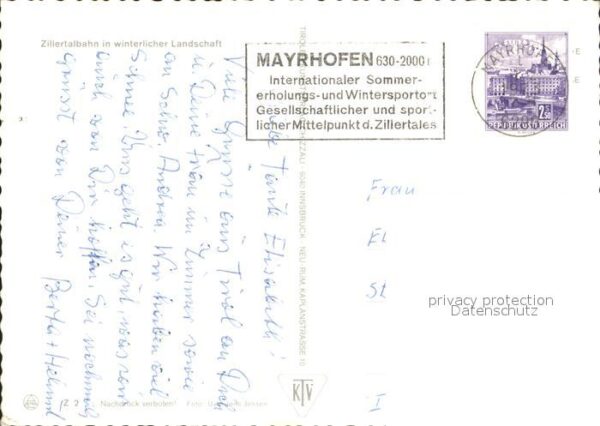 Zillertalbahn in winterlicher Landschaft
MAYRHOFEN 630-2000
Internationaler Sommer-
erholungs-und Wintersportort
Gesellschaftlicher und sport-
licher Mittelpunkt d. Zillertales
MAYRHOFEN
2.50
REPUBLIK ÖSTERREICH
Liebe Tante Elisabeth!
Viele Grüsse aus Tirol an Dich
u. Deine im Zimmer sowie
an Schw. Andrea. Wir haben viel
Schnee. Uns geht es gut, was wir
auch von Dir hoffen. Sei nochmals
gegrüsst von Deiner Berta + Helmut
6040 INNSBRUCK - NEU-RUM, KAPLANSTRASSE 10
Frau
El
St
I
privacy protection
Datenschutz
KTV
Z 2
Nachdruck verboten!
Foto: